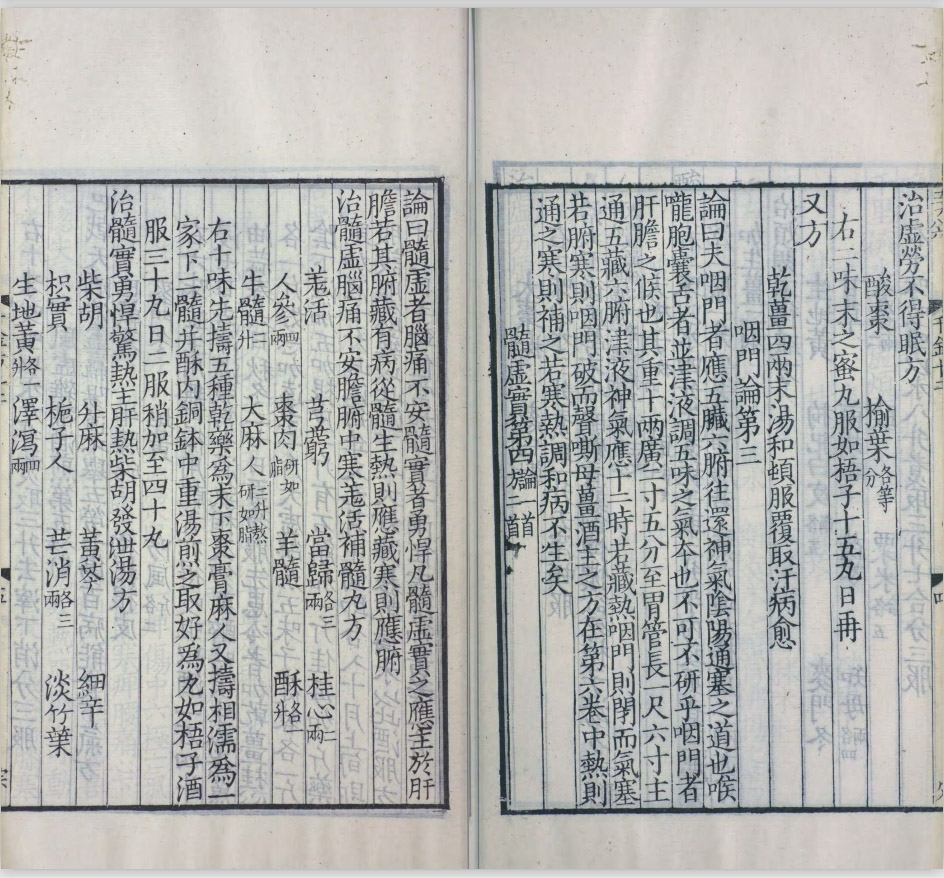 治虛勞不得眠方
酸棗 榆葉各等分
右二味末之蜜丸服如梧子十五丸日再
又方
乾薑四兩末湯和頓服覆取汗病愈
咽門論第三
論曰夫咽門者應五臟六腑往還神氣陰陽通塞之道也喉
嚨胞囊舌者並津液調五味之氣本也不可不研乎咽門者
肝膽之候也其重十兩廣二寸五分至胃管長一尺六寸主
通五藏六腑津液神氣應十二時若藏熱咽門則閉而氣塞
若腑寒則咽門破而聲嘶母薑酒主之方在第六卷中熱則
通之寒則補之若寒熱調和病不生矣
髓虛實第四論二首
論曰髓虛者腦痛不安髓實者勇悍凡髓虛實之應主於肝
膽若其腑藏有病從髓生熱則應藏寒則應腑
治髓虛腦痛不安膽腑中寒羌活補髓丸方
羌活 芎藭 當歸各三兩 桂心二兩
人參四兩 棗肉研如脂 羊髓 酥各一升
牛髓一升 大麻人二升熬研如脂
右十味先擣五種乾藥為末下棗膏麻人又擣相濡為一
家下二髓并酥內銅鉢中重湯煎之取好為丸如梧子酒
服三十丸日二服稍加至四十丸
治髓實勇悍驚熱主肝熱柴胡發泄湯方
柴胡 升麻 黃芩 細辛
枳實 梔子人 芒消各三兩 淡竹葉
生地黃各一升 澤瀉四兩